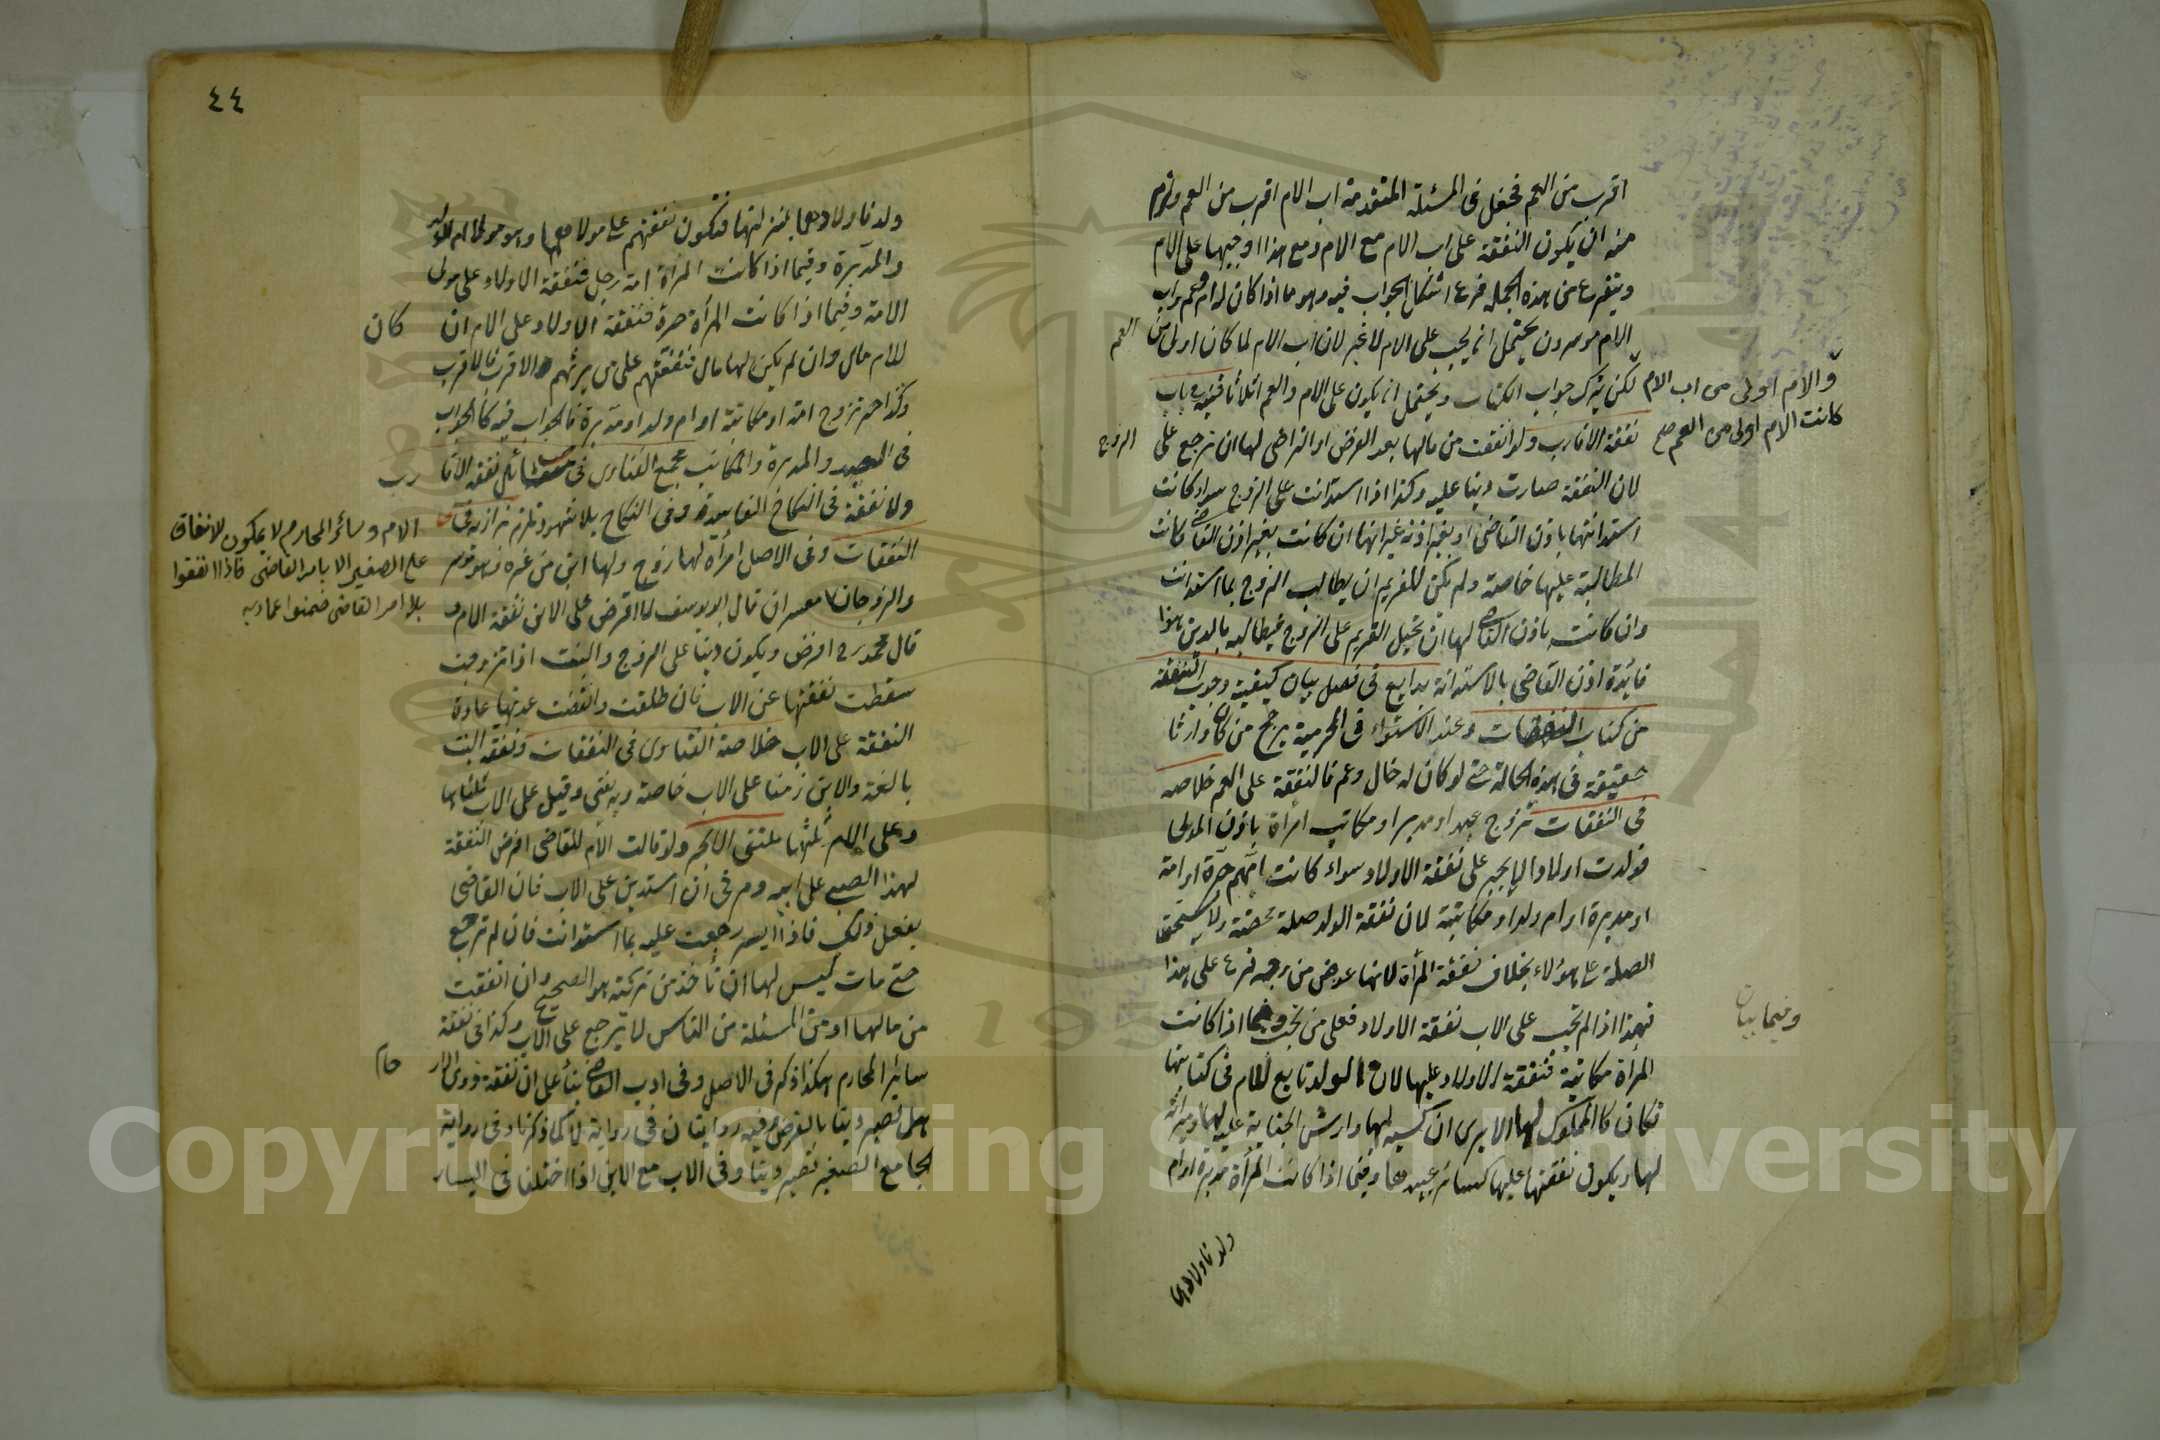 اقرب من العم فجعل فى المسئلة المتقدمة اب الام اقرب من العم ولزم
منه ان يكون النفقة على اب الام مع الام ومع هذا اوجبها على الام
ويتفرع من هذه الجملة فرع اشكل الجواب فيه وهو ما اذا كان له ام وعم واب
الام موسرون يحتمل ان يجب على الام لا غير لان اب الام لما كان اولى من
العم
والام اولى من اب الام
كانت الام اولى من العم صح
لكن يترك جواب الكتاب ويحتمل ان يكون على الام والعم اثلاثا قنيه باب
نفقة الاقارب ولو انفقت من مالها بعد الفرض او التراضى لها ان ترجع على
الزوج
لان النفقة صارت دينا عليه وكذا اذا استدانت على الزوج سواء كانت
استدانتها باذن القاضى او بغير اذنه غير انها ان كانت بغير اذن القاضى كانت
المطالبة عليها خاصة ولم يكن للغريم ان يطالب الزوج بما استدانت
وان كانت باذن القاضى لها ان تحيل الغريم على الزوج فيطالبه بالدين هذا
فائدة اذن القاضى بالاستدانة بدايع فى فصل بيان كيفية وجوب النفقة
من كتاب النفقات وعند الاستواء فى المحرمية يرجح من كان وارثا
حقيقة فى هذه الحالة حتى لو كان له خال وعم فالنفقة على العم خلاصه
فى النفقات تزوج عبد او مدبر او مكاتب امرأة باذن المولى
فولدت اولادا لا يجبر على نفقة الاولاد سواء كانت امهم حرة او امة
او مدبرة او ام ولد او مكاتبة لان نفقة الولد صلة محضة ولا يستحق
الصلة على هؤلاء بخلاف نفقة المرأة لانها عوض من وجه فرع على هذا
فهذا اذا لم تجب على الاب نفقة الاولاد فعلى من تجب وفيما اذا كانت
وفيما بيان
المرأة مكاتبة فنفقة الاولاد عليها لان الولد تابع للام فى كتابتها
فكان كالمملوك لها الا يرى ان كسبه لها وارش الجناية عليه لها وميراثه
لها ويكون نفقتها عليها كسائر عبيدها وفيما اذا كانت المرأة مدبرة او ام
ولد فاولادها
٤٤
ولد فاولادهما بمنزلتهما فتكون نفقتهم على مولاهما وهو مولى ام الولد
والمدبرة وفيما اذا كانت المرأة امة رجل فنفقة الاولاد على مولى
الامة وفيما اذا كانت المرأة حرة فنفقة الاولاد على الام ان كان
للام مال وان لم يكن لها مال فنفقتهم على من يرثهم الاقرب فالاقرب
وكذا حر تزوج امة او مكاتبة او ام ولد او مدبرة فالجواب فيه كالجواب
فى العبد والمدبرة والمكاتب مجمع الفتاوى فى مسائل نفقة الاقارب
ولا نفقة فى النكاح الفاسد وفى النكاح بلا شهود تلزم بزازيه فى
النفقات وفى الاصل امرأة لها زوج ولها ابن من غيره وهو موسر
والزوجان معسران قال ابو يوسف لا افرض على الابن نفقة الام و
قال محمد رح افرض ويكون دينا على الزوج والبنت اذا تزوجت
سقطت نفقتها عن الاب فان طلقت وانقضت عدتها عادة
النفقة على الاب خلاصة الفتاوى فى النفقات ونفقة البنت
بالغة والابن زمنا على الاب خاصة وبه يفتى وقيل على الاب ثلثاها
وعلى الام ثلثها ملتقى الابحر ولو قالت الام للقاضى افرض النفقة
لهذا الصبى على ابيه ومرنى ان استدين على الاب فان القاضى
يفعل ذلك فاذا ايسر رجعت عليه بما استدانت فان لم ترجع
حتى مات ليس لها ان تأخذ من تركته هو الصحيح وان انفقت
من مالها او من المسئلة من الناس لا يرجع على الاب وكذا فى نفقة
سائر المحارم هكذا ذكر فى الاصل وفى ادب القاضى بناء على ان نفقة ذوى الارحام
هل تصير دينا بالفرض وفيه روايتان فى رواية لا كما ذكرنا وفى رواية
الجامع الصغير تصير دينا وفى الاب مع الابن اذا اختلفا فى اليسار
الام وسائر المحارم لا يملكون الانفاق
على الصغير الا بامر القاضى فاذا انفقوا
بلا امر القاضى ضمنوا عماديه
Copyright © King Saud University
195